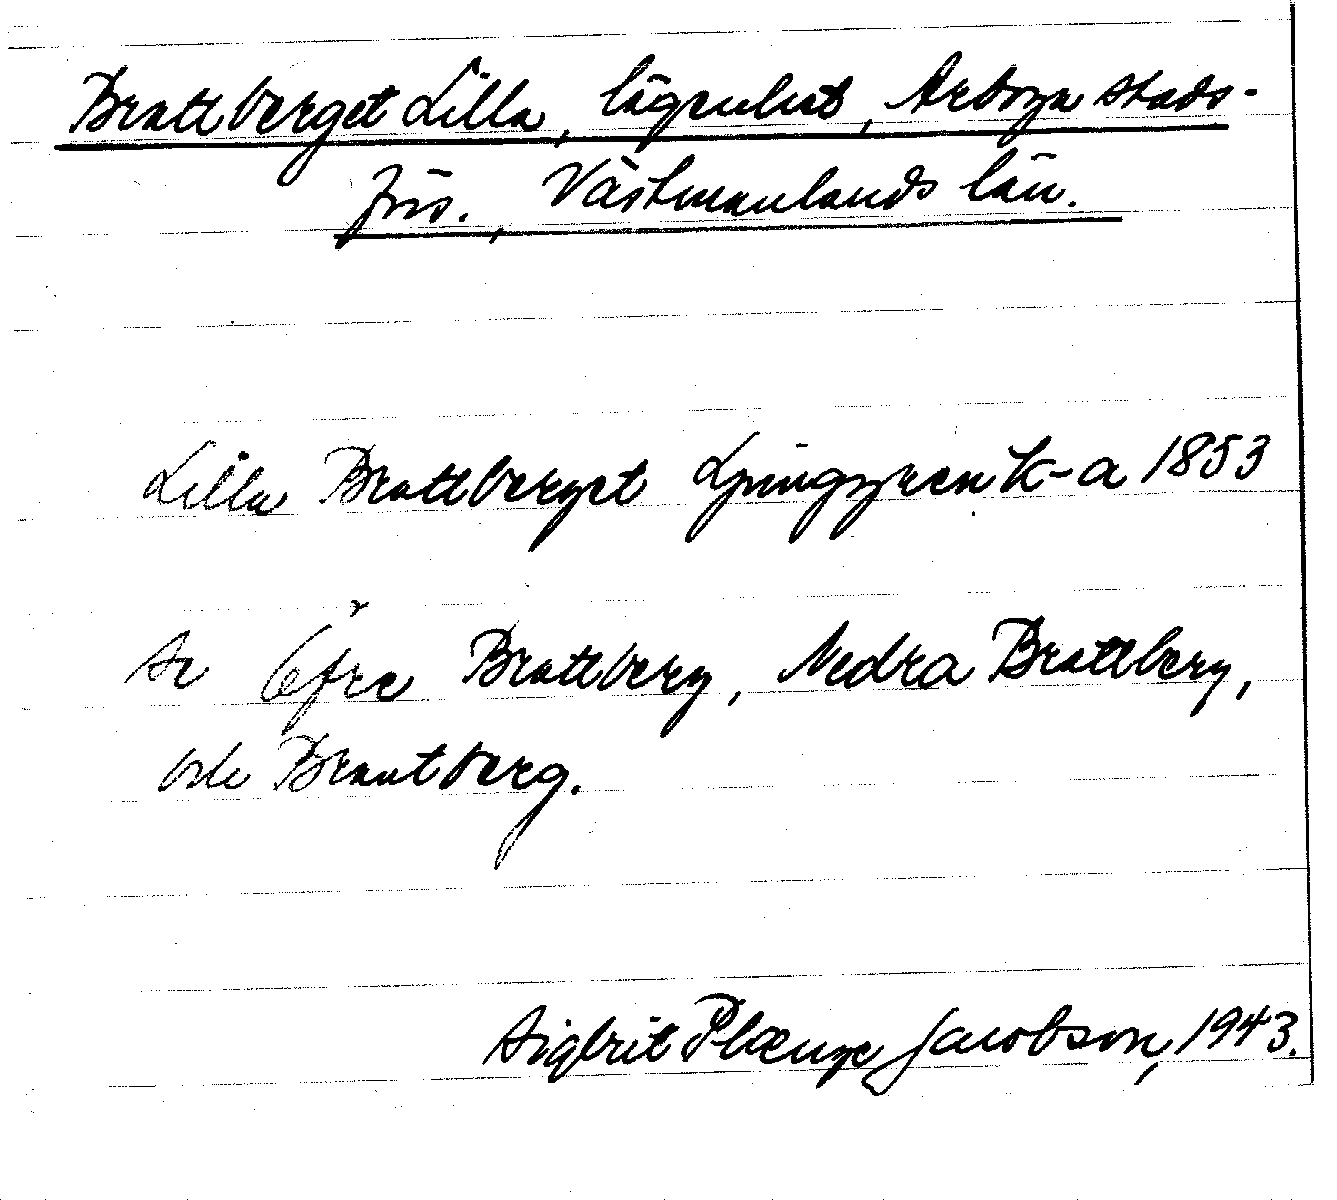 Brattberget Lilla, lägenhet, Arboga stads-
förs., Västmanlands län.
Lilla Brattberget Ljunggren K-a 1853
Se Öfre Brattberg, Nedra Brattberg,
och Brantberg.
Sigbrit Plænge Jacobson, 1943.